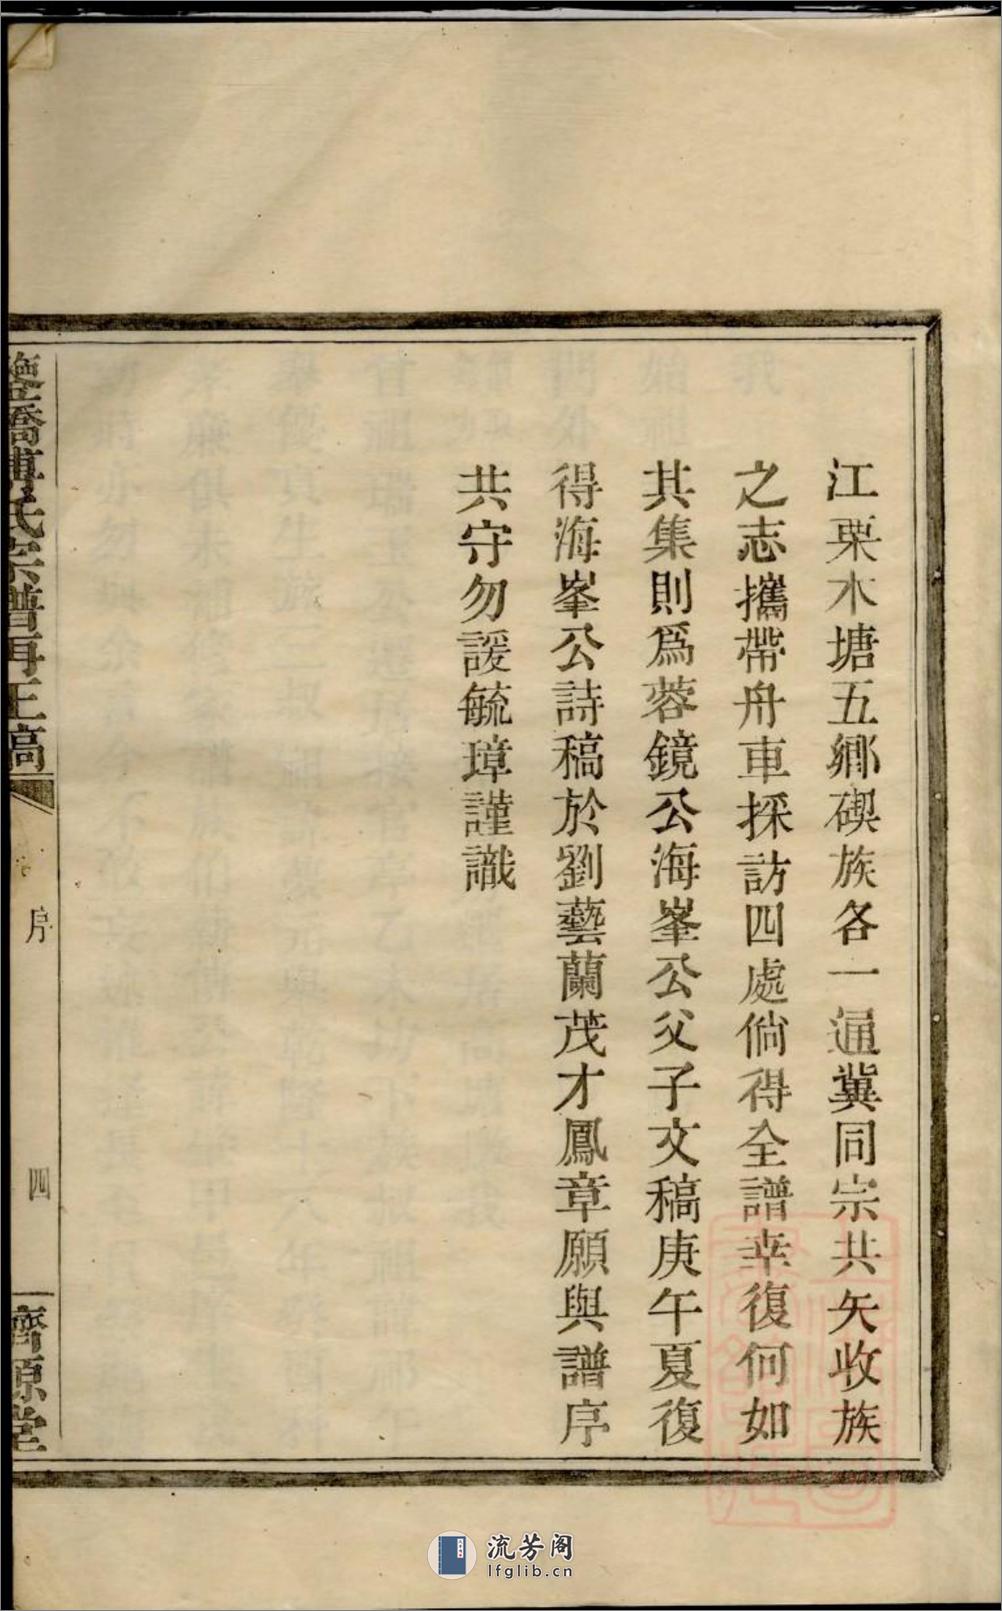 江栗木塘五鄉磎族各一通冀同宗共矢收族
之志攜帶舟車採訪四處倘得全譜幸復何如
其集則爲蓉鏡公海峯公父子文稿庚午夏復
得海峯公詩稿於劉藝蘭茂才鳳章願與譜序
共守勿諼毓璋謹識
橋傅氏宗譜再正稿
序
四
濟源堂
流芳阁
lfglib.cn